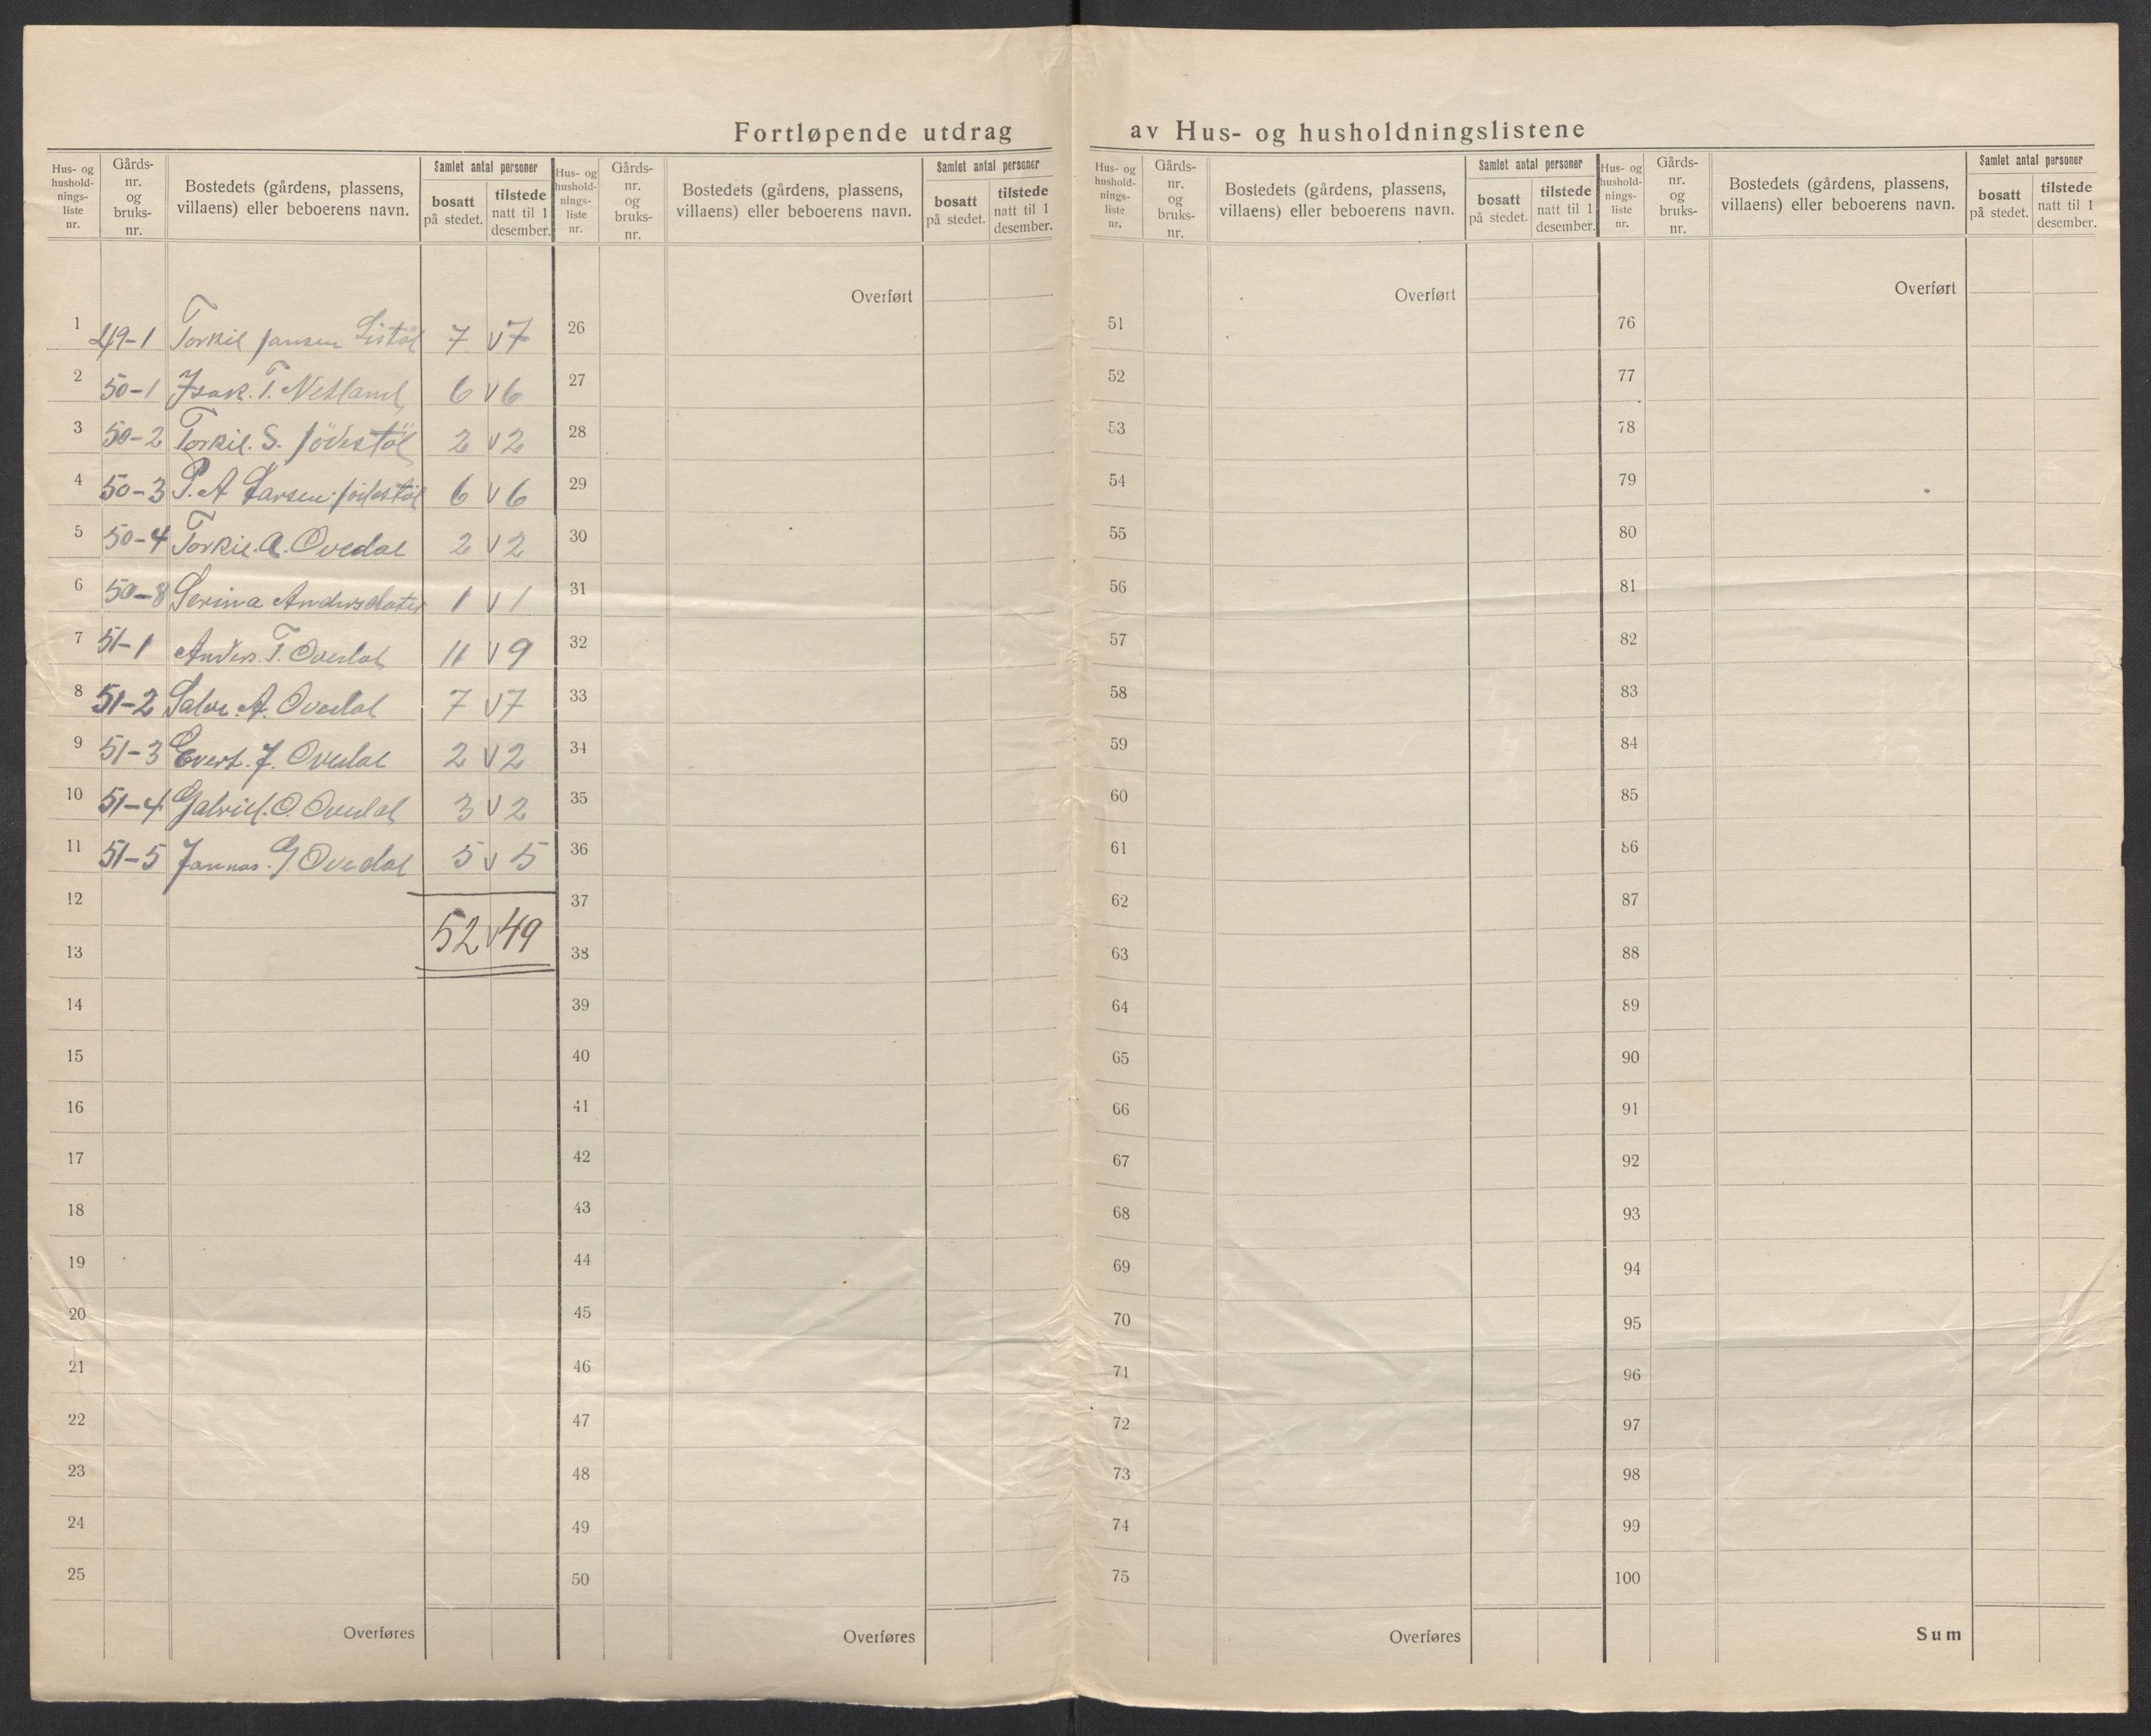 Fortløpende utdrag av Hus- og husholdningslistene
Hus- og
hushold-
nings-
liste
nr.
Gårds-
nr.
og
bruks-
nr.
Bostedets (gårdens, plassens,
villaens) eller beboerens navn.
Samlet antal personer
bosatt
på stedet.
tilstede
natt til 1
desember.
1 49-1 Torkil Jansen Listöl 7 v 7
2 50-1 Isak. T. Netland 6 v 6
3 50-2 Torkil. S. Jödestöl 2 v 2
4 50-3 P. A Larsen Jödestöl 6 v 6
5 50-4 Torkil. A. Ovedal 2 v 2
6 50-8 Serina Andersdater 1 v 1
7 51-1 Anders. T. Ovedal 11 v 9
8 51-2 Salve. A. Ovedal 7 v 7
9 51-3 Evert. J. Ovedal 2 v 2
10 51-4 Gabriel. O. Ovedal 3 v 2
11 51-5 Jannas. G Ovedal 5 v 5
12
52 v 49
13
14
15
16
17
18
19
20
21
22
23
24
25
Overføres
Hus- og
hushold-
nings-
liste
nr.
Gårds-
nr.
og
bruks-
nr.
Bostedets (gårdens, plassens,
villaens) eller beboerens navn.
Samlet antal personer
bosatt
på stedet.
tilstede
natt til 1
desember.
Overført
26
27
28
29
30
31
32
33
34
35
36
37
38
39
40
41
42
43
44
45
46
47
48
49
50
Overføres
Hus- og
hushold-
nings-
liste
nr.
Gårds-
nr.
og
bruks-
nr.
Bostedets (gårdens, plassens,
villaens) eller beboerens navn.
Samlet antal personer
bosatt
på stedet.
tilstede
natt til 1
desember.
Overført
51
52
53
54
55
56
57
58
59
60
61
62
63
64
65
66
67
68
69
70
71
72
73
74
75
Overføres
Hus- og
hushold-
nings-
liste
nr.
Gårds-
nr.
og
bruks-
nr.
Bostedets (gårdens, plassens,
villaens) eller beboerens navn.
Samlet antal personer
bosatt
på stedet.
tilstede
natt til 1
desember.
Overført
76
77
78
79
80
81
82
83
84
85
86
87
88
89
90
91
92
93
94
95
96
97
98
99
100
Sum